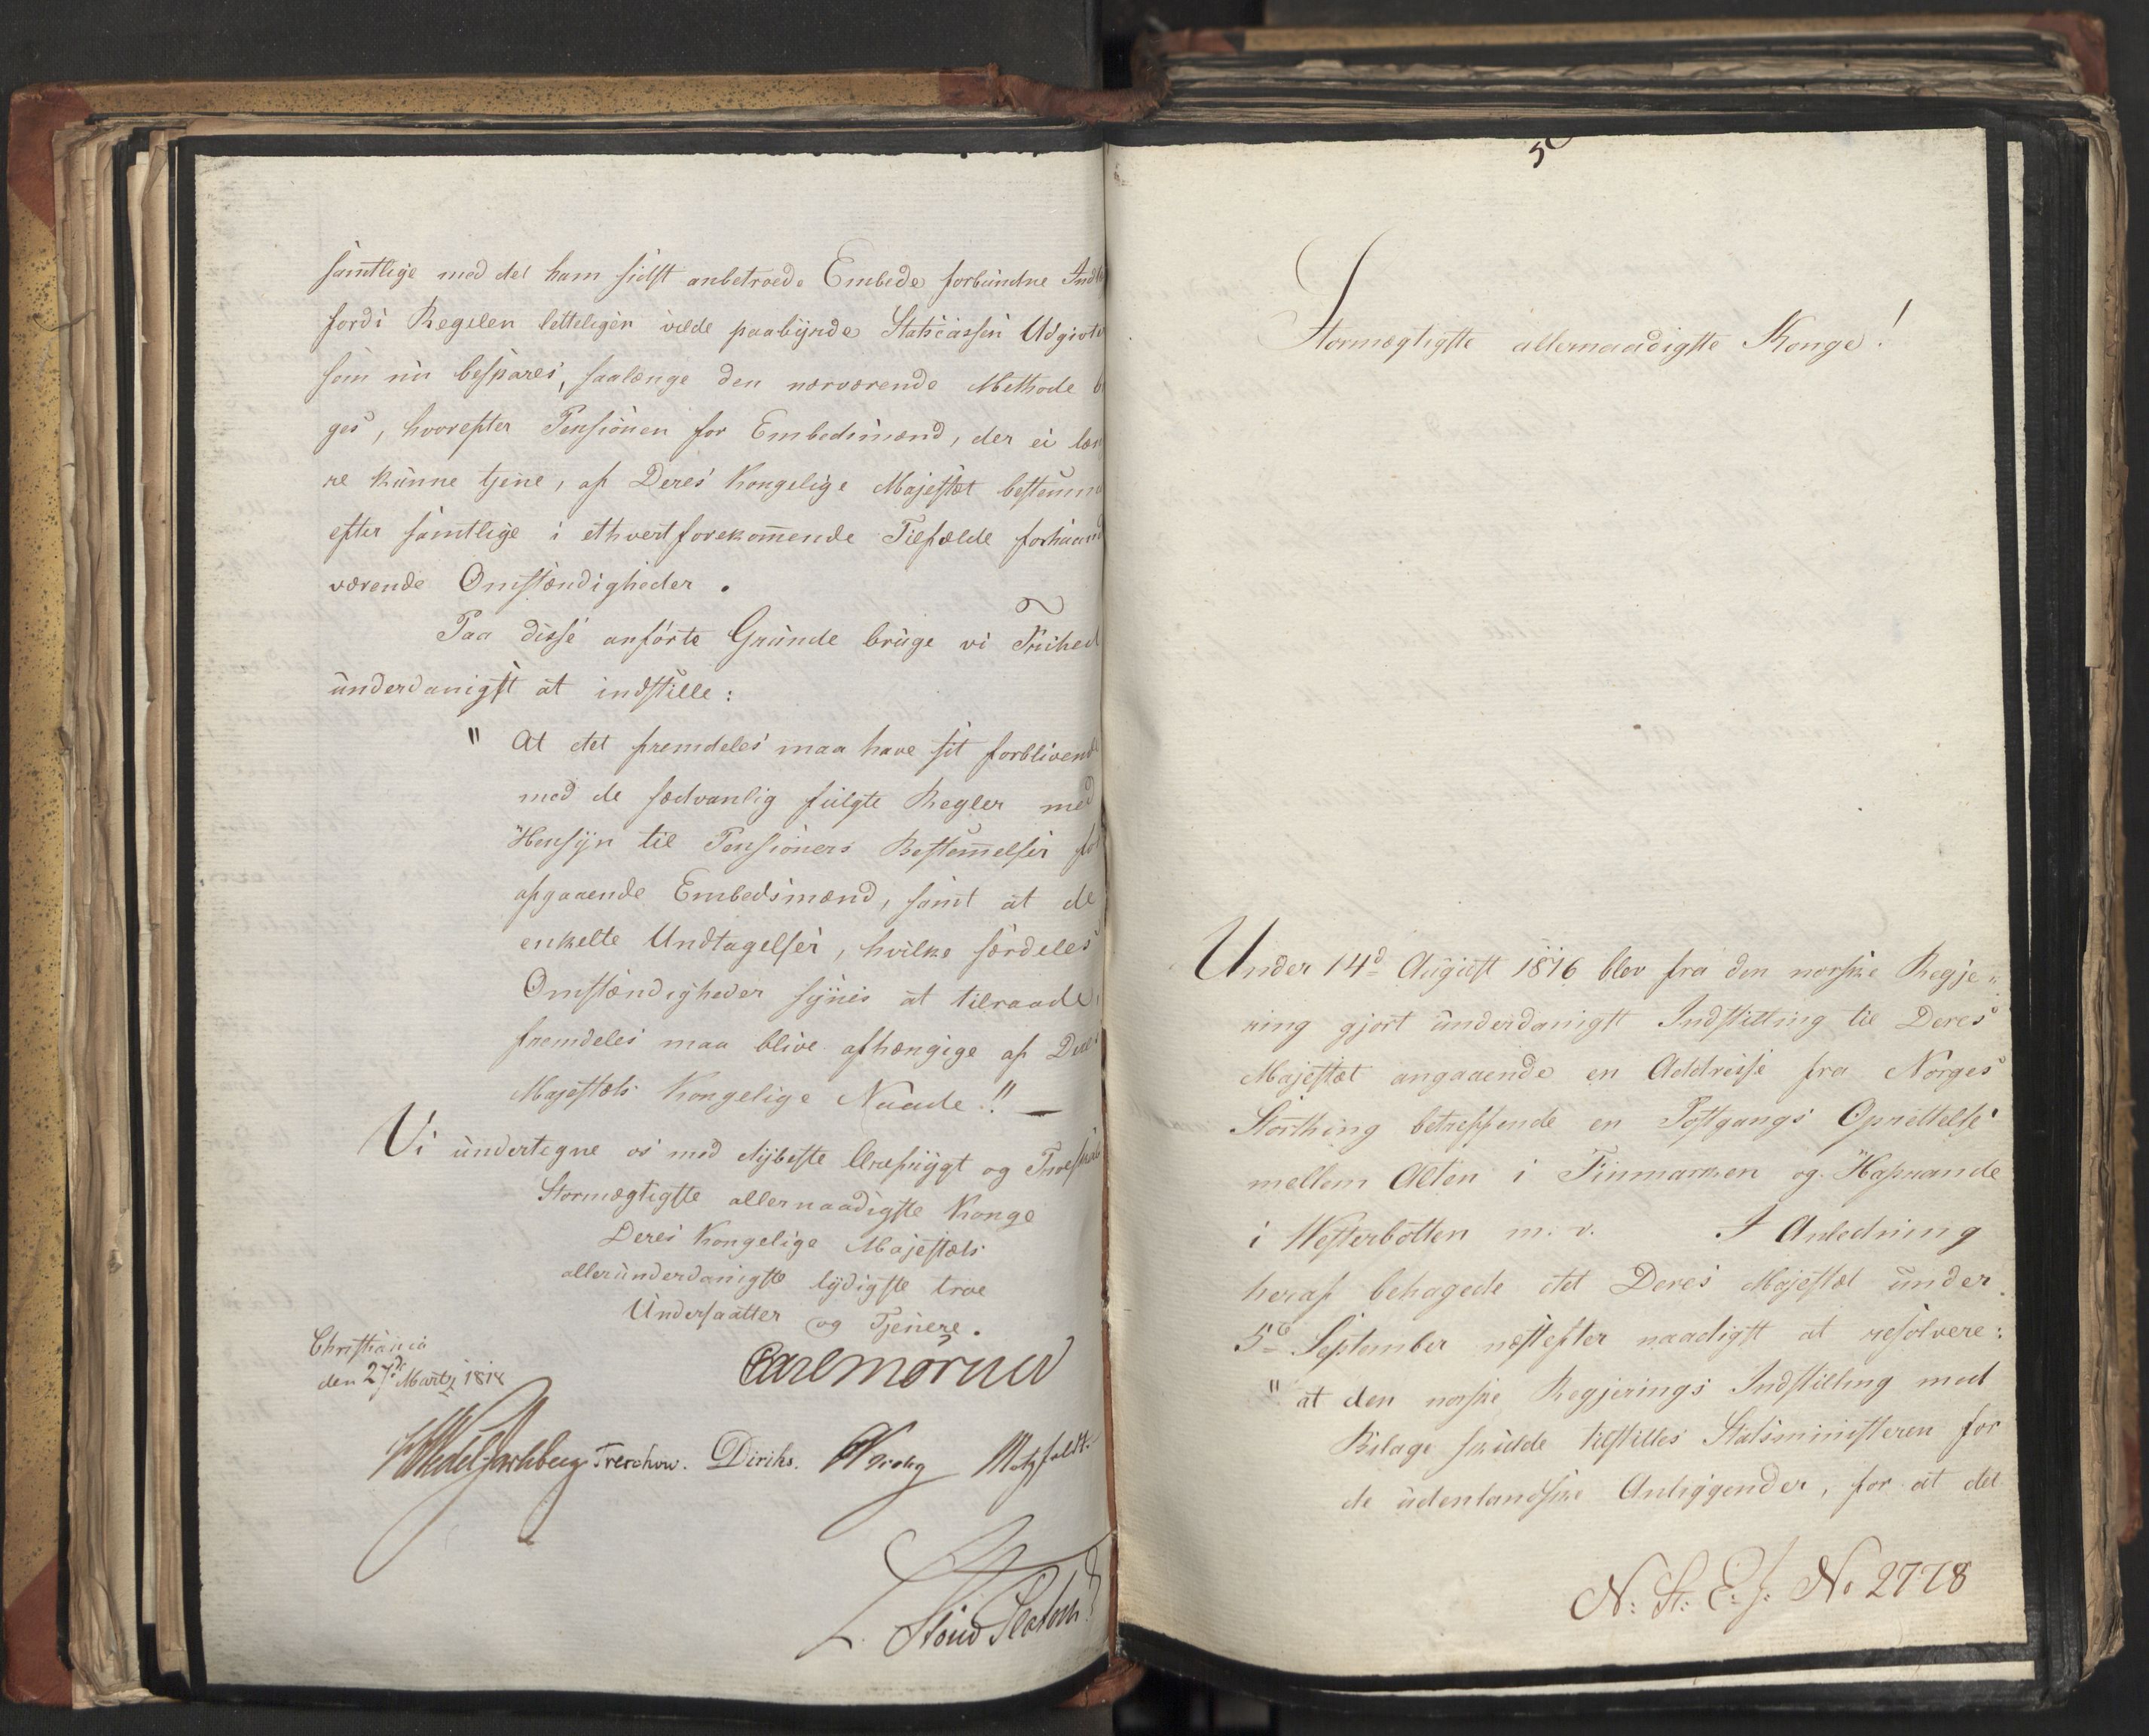 samtlige med det ham sidst anbetroede Embede forbundne Indk
fordi Regelen letteligen vilde paabyrde Statscassen Udgivter
som nu bespares, saalænge den nærværende Methode b
ges, hvorefter Pensionen for Embedsmænd, der ei læn
re kunne tjene, af Deres Kongelige Majestæt bestemm
efter samtlige i ethvert forekom̅ende Tilfælde forhaand
værende Omstændigheder.
Paa disse anførte Grunde bruge vi Frihed
underdanigst at indstille:
" At det fremdeles maa have sit forblivende
med de sædvanlig fulgte Regler med
Hensyn til Pensioners Bestem̅elser for
afgaaende Embedsmænd, samt at de
enkelte Undtagelser, hvilke særdeles
Omstændigheder synes at tilraade,
fremdeles maa blive afhængige af Deres
Majestæts Kongelige Naade!! —
Vi undertegne os med dybeste Ærefrygt og Troeskab
Stormægtigste allernaadigste Konge
Deres Kongelige Majestæts
allerunderdanigste lydigste troe
Undersaatter og Tjenere.
Christiania
den 27de Martz 1818
Carl Mörner
Wedel Jarlsberg Treschow. Diriks. Krohg Motzfeldt.
L. Stoud Platou
5
Stormægtigste allernaadigste Konge!
Under 14d August 1816 blev fra den norske Regje"
ring gjort underdanigst Indstilling til Deres
Majestæt angaaende en Addresse fra Norges
Storthing betreffende en Postgangs Oprettelse
mellem Alten i Finmarken og Haparande
i Westerbotten m. v. I Anledning
heraf behagede det Deres Majestæt under
5te September næstefter naadigst at resolvere:
" at den norske Regjerings Indstilling med
Bilage skulde tilstilles Statsministeren for
de udenlandske Anliggender, for at det
N: St: E: J: No 2778